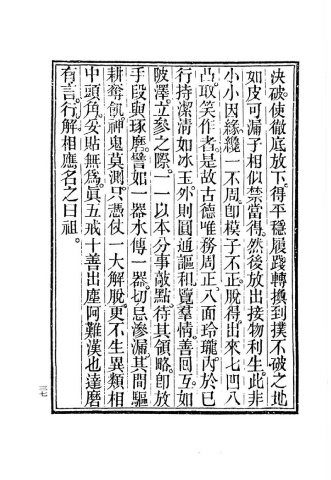 決破使徹底放下得平穩履踐轉換到撲不破之地
如皮可漏子相似禁當得然後放出接物利生此非
小小因緣纔一不周卽模子不正脫得出來七凹八
凸取笑作者是故古德唯務周正八面玲瓏內於已
行持潔淸如冰玉外則圓通謳和覽羣情善回互如
陂澤立參之際一一以本分事敲點待其領略卽放
手段與琢磨譬如一器水傳一器切忌滲漏其間驅
耕奪飢神鬼莫測只憑仗一大解脫更不生異類相
中頭角妥貼無爲眞五戒十善出塵阿難漢也達磨
有言行解相應名之曰祖
三七